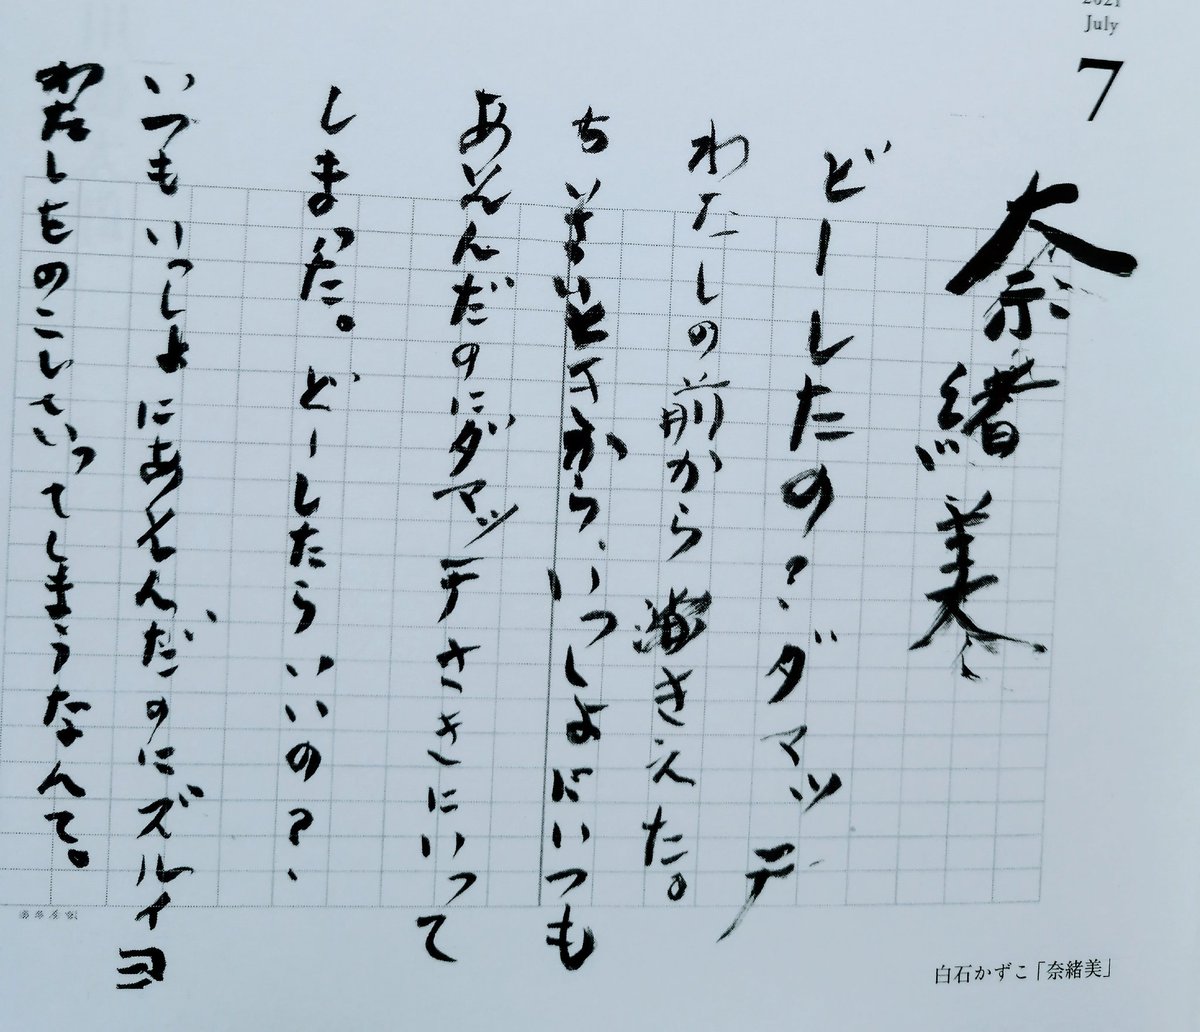 2021
July
7
奈緒美
どーしたの?ダマッテ
わたしの前から 海きえた。
ちいさいときから、いつしよにいつも
あそんだのにダマッテさきにいって
しまった。どーしたらいいの?
いつもいっしょにあそんだのにズルイヨ
わたしをのこしていってしまうなんて。
白石かずこ「奈緒美」